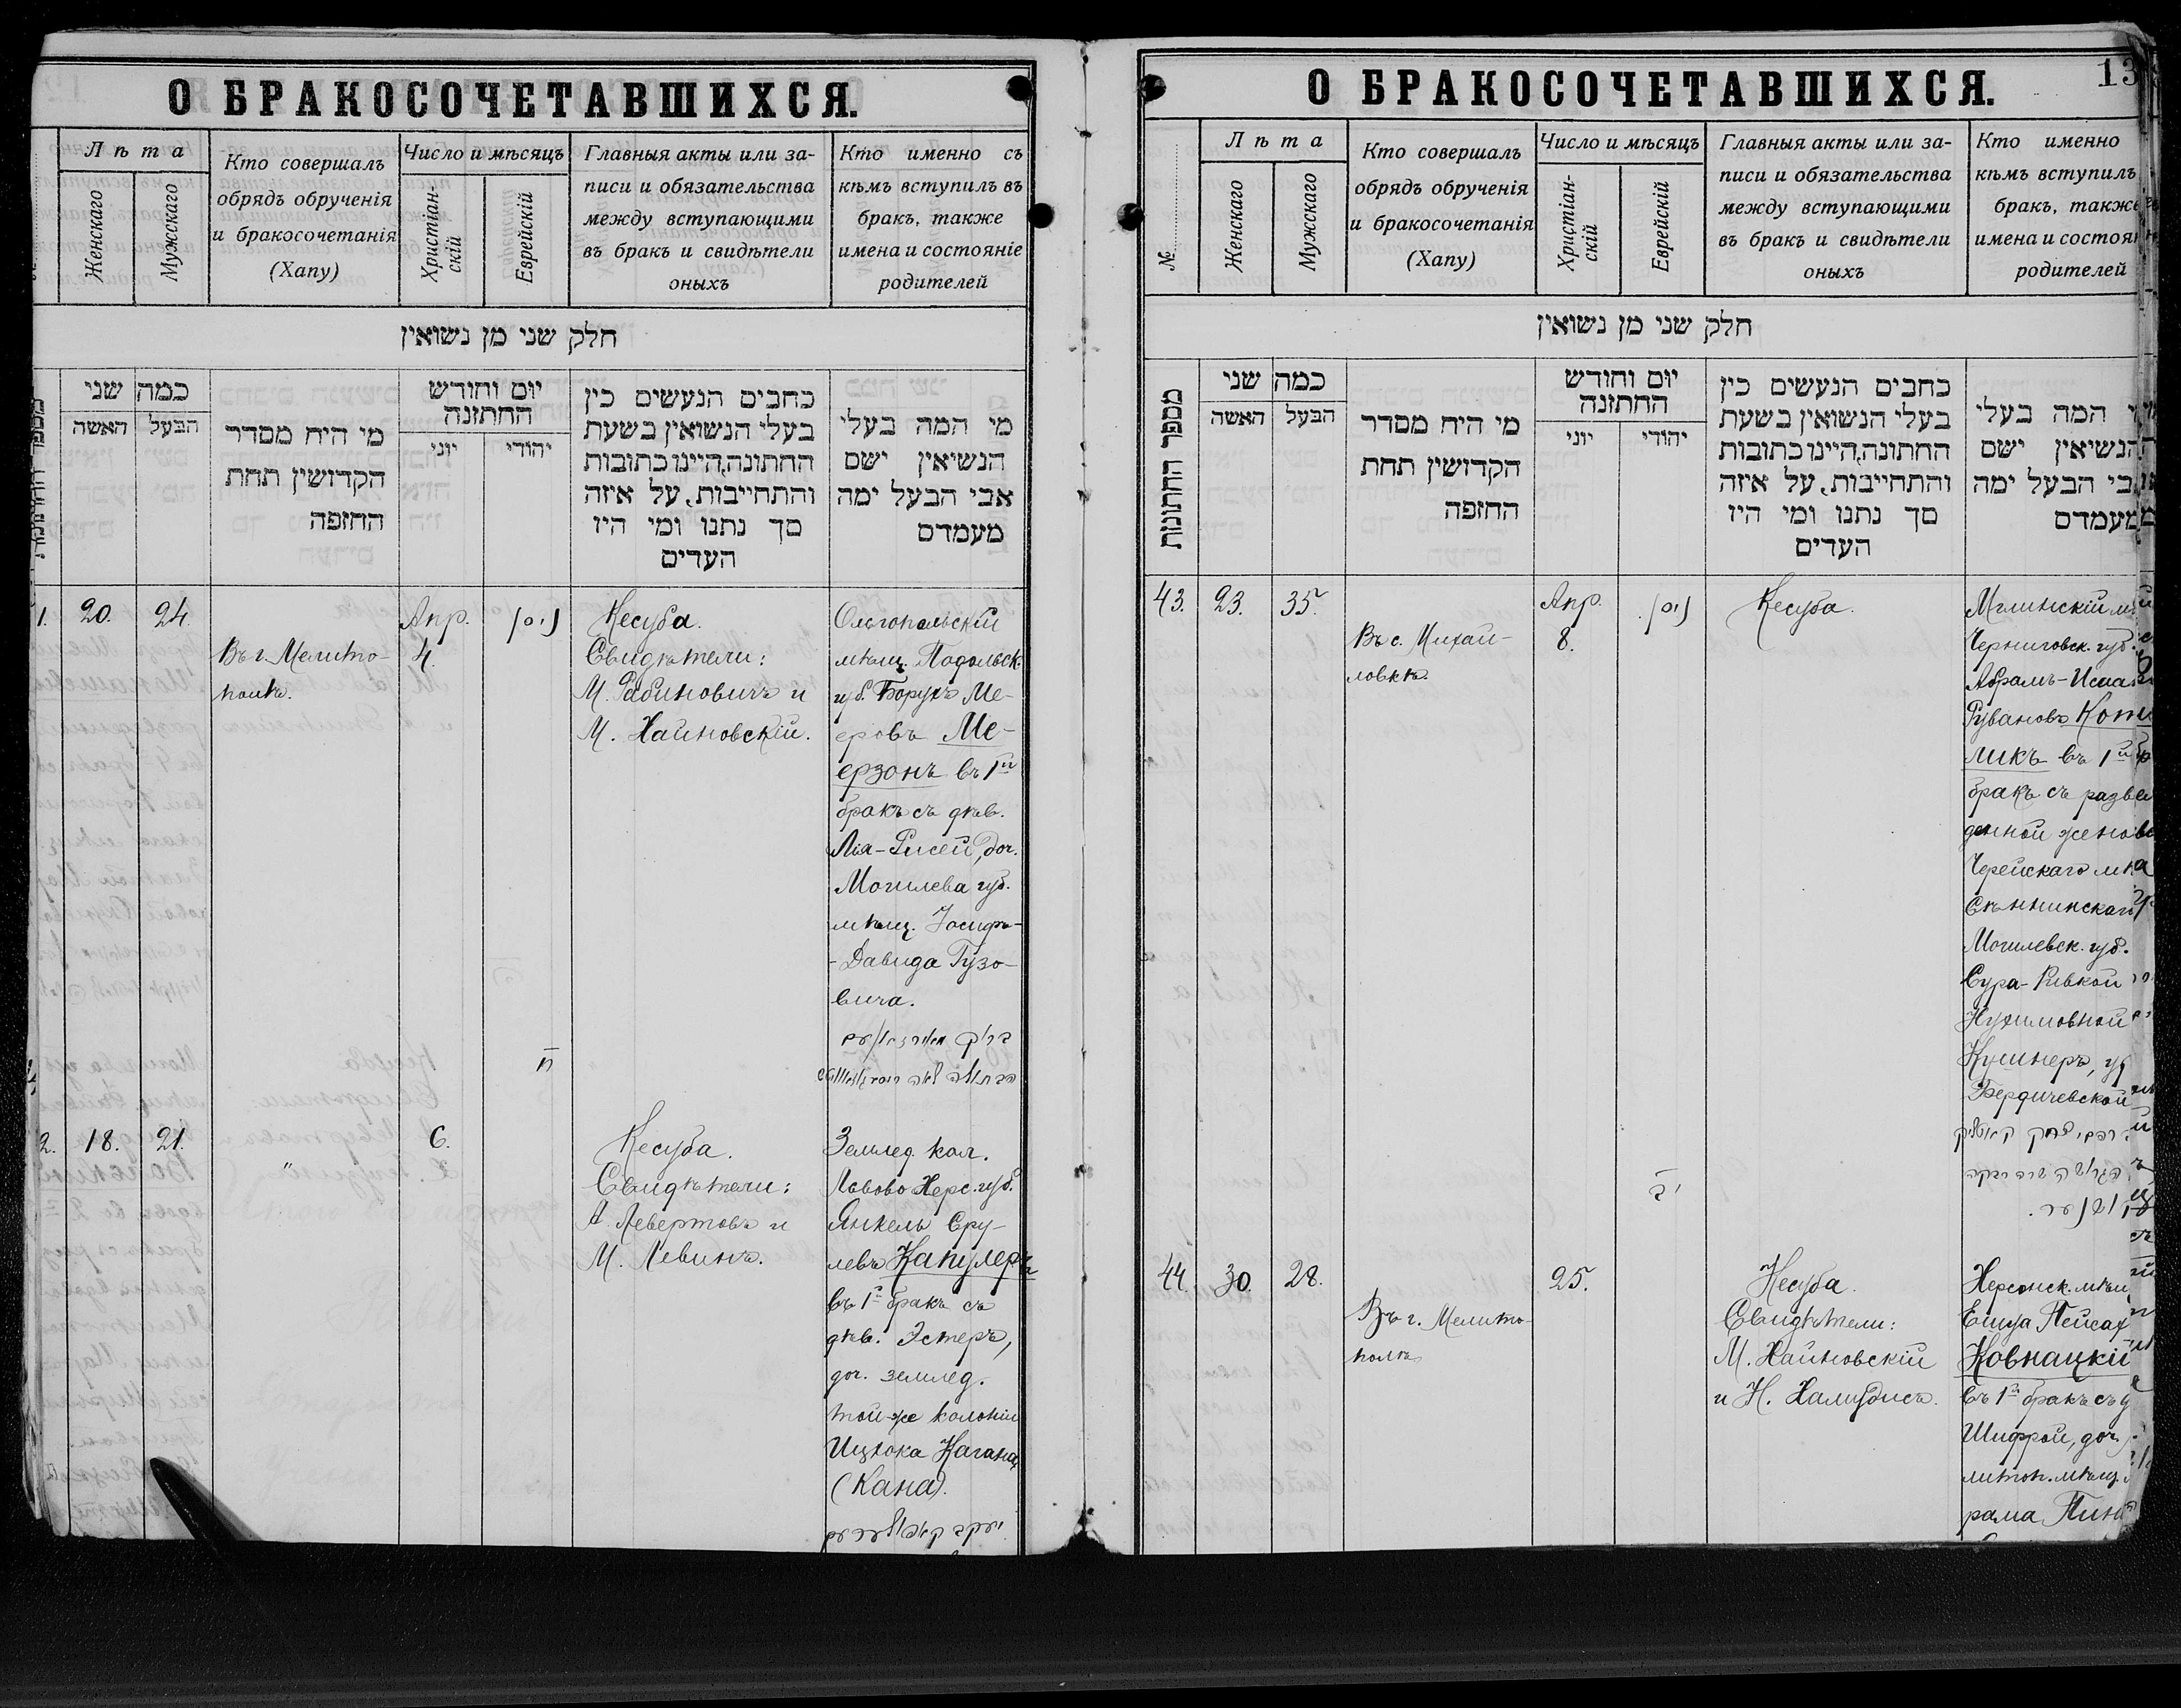 О БРАКОСОЧЕТАВШИХСЯ.
Лѣта
Женскаго
Мужскаго
Кто совершалъ
обрядъ обрученія
и бракосочетанія
(Хапу)
Число и мѣсяцъ
Христіан-
скій
Еврейскій
Главныя акты или за-
писи и обязательства
между вступающими
въ бракъ и свидѣтели
оныхъ
Кто именно съ
кѣмъ вступилъ въ
бракъ, также
имена и состояніе
родителей
חלק שני מן נשואין
כמה שני
האשה
הבעל
מי היח מסדר
הקדושין תחת
החופה
יום וחודש
החתונה
יוני
יהודי
כחבים הנעשים כין
בעלי הנשואין בשעת
החתונה, היינו כתובות
והתחייבות, על איזה
סך נתנו ומי היו
העדים
מי המה בעלי
הנשיאין ישם
אבי הבעל ימה
מעמדם
1.
20.
24.
Въ г. Мелито-
полѣ.
Апр.
4.
ניסן
Кесуба.
Свидѣтели:
М. Рабиновичъ и
М. Хайновскій.
Ольгопольскій
мѣщ. Подольск.
губ. Борухъ Ме-
еровъ Ме-
ерзонъ въ 1й
бракъ съ дѣв.
Лія-Рисей, доч.
Могилева губ.
мѣщ. Іосифъ-
-Давида Гузо-
вича.
ח
2.
18.
21.
"
6.
Кесуба.
Свидѣтели:
А. Левертовъ и
М. Левинъ.
Землед. кол.
Львово Херс. губ.
Янкель Сру-
левъ Капулеръ
въ 1й бракъ съ
дѣв. Эстеръ,
доч. землед.
той-же колоніи
Ицхока Кагана
(Кана).
О БРАКОСОЧЕТАВШИХСЯ.
13
№
Лѣта
Женскаго
Мужскаго
Кто совершалъ
обрядъ обрученія
и бракосочетанія
(Хапу)
Число и мѣсяцъ
Христіан-
скій
Еврейскій
Главныя акты или за-
писи и обязательства
между вступающими
въ бракъ и свидѣтели
оныхъ
Кто именно
кѣмъ вступилъ
бракъ, также
имена и состоя
родителей
חלק שני מן נשואין
מספר החתונות
כמה שני
האשה
הבעל
מי היח מסדר
הקדושין תחת
החופה
יום וחודש
החתונה
יוני
יהודי
כחבים הנעשים כין
בעלי הנשואין בשעת
החתונה, היינו כתובות
והתחייבות, על איזה
סך נתנו ומי היו
העדים
המה בעלי
הנשיאין ישם
אבי הבעל ימה
מעמדם
43.
23.
35.
Въ с. Михай-
ловкѣ.
Апр.
8.
ניסן
Кесуба.
Мглинскій
Черниговск. губ.
Абрамъ-Исаа
Рувановъ
ликъ въ 1й
бракъ съ разве
денной женой
Черейскаго
Сѣннинскаго
Могилевск. губ.
Сура-Ривкой
Нухимовной
Кушнеръ, ур
Бердичевской
יב
44.
30.
28.
Въ г. Мелито-
полѣ
25.
Кесуба.
Свидѣтели:
М. Хайновскій
и Н.
Херсонск. мѣщ
Пейсах
Ковнацкій
въ 1й бракъ съ д
Шифрой, доч.
литоп. мѣщ.
рама